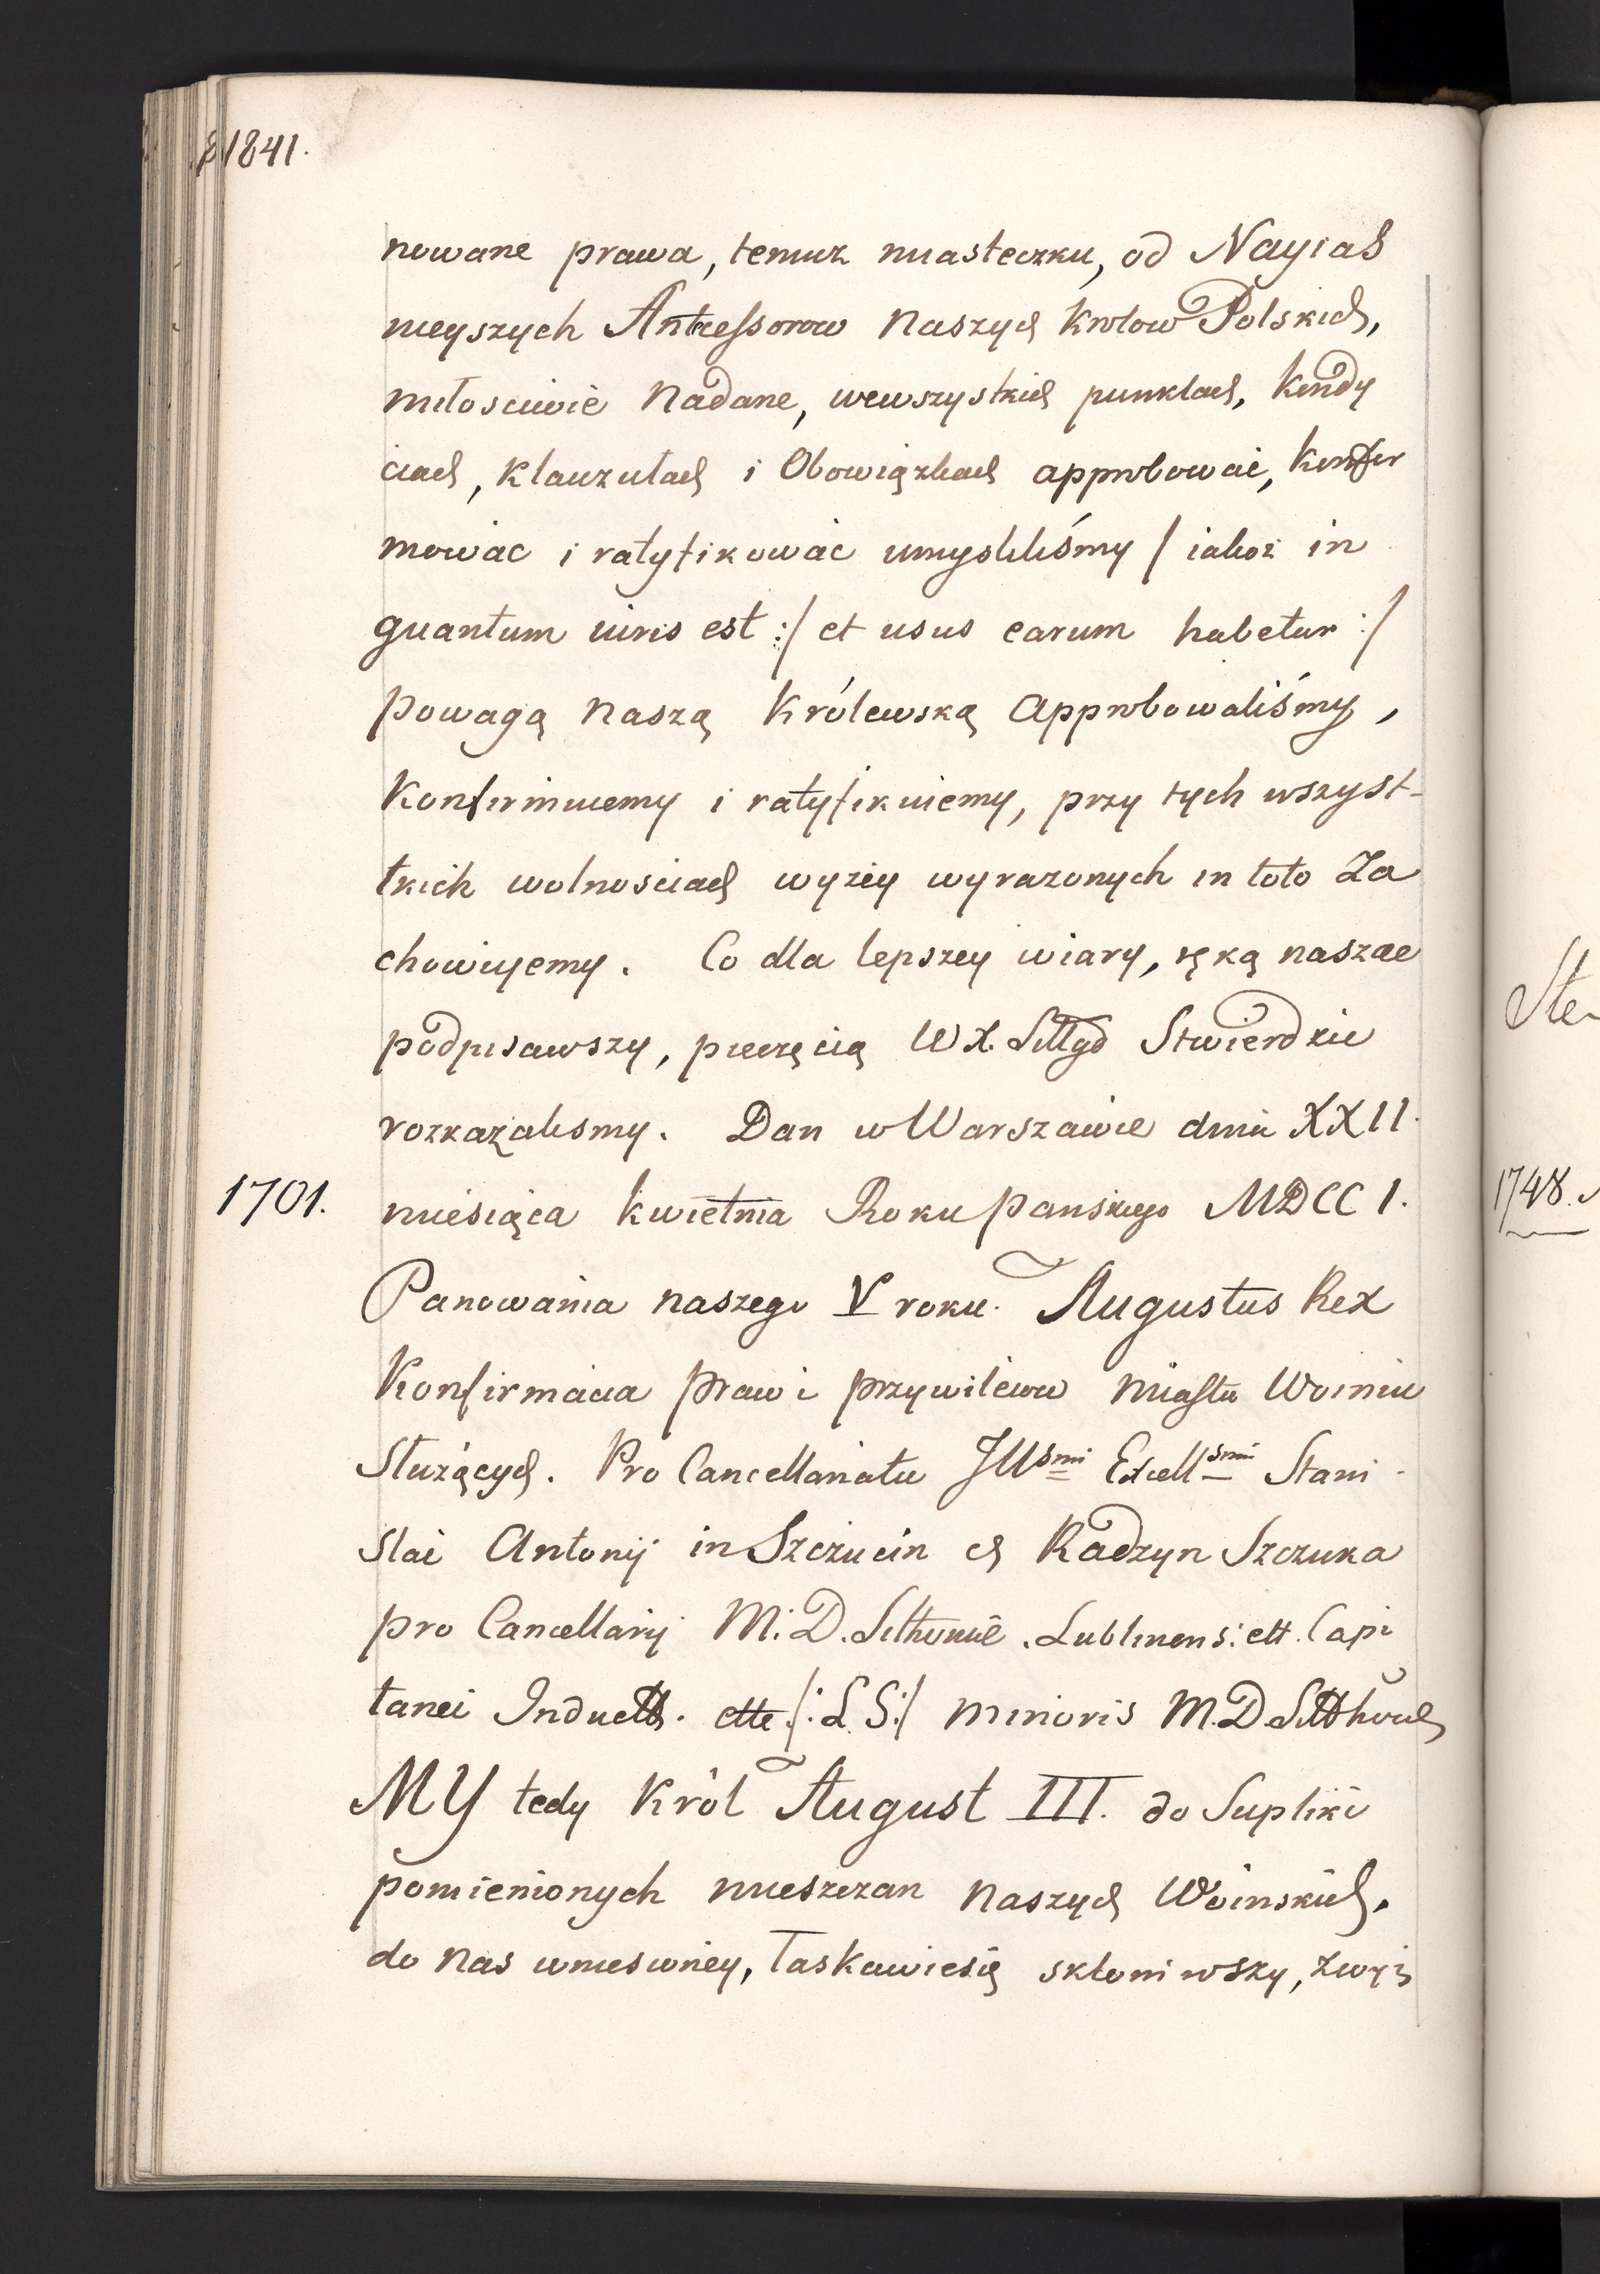 1841.
nowane prawa, temuz miasteczku, od Nayias
nieyszych Antecessorow Naszych Krolow Polskich,
miłosciwie Nadane, wewszystkich punktach, Kondy
ciach, Klauzulach i Obowiązkach approbowac, Konfir
mowac i ratyfikowac umyslilismy / iakoz in
quantum iuris est :/ et usus earum habetur :/
powagą naszą Królewską Approbowaliśmy,
Konfirmuiemy i ratyfikuiemy, przy tych wszyst-
tkich wolnosciach wyzey wyrazonych in toto Za
chowuyemy. Co dla lepszey wiary, ręką naszae
podpisawszy, pieczęcią W X. Litt Stwierdzic
rozkazalismy. Dan w Warszawie dnia XXII.
1701. miesiąca Kwietnia Roku panskiego MDCCI.
Panowania naszego V roku. Augustus Rex
Konfirmacia praw i przywilewu Miastu Woiniu
Służących. Pro Cancellariatu Illsmi Excellsmi Stani-
slai Antonij in Szczucin ch Radzyn Szczuka
pro Cancellarij M. D. Lithuaniē. Lublinens: ett. Capi
tanei ette /: L. S :/ minoris M. D.
MY tedy Król August III. do Supliki
pomienionych mieszczan Naszych Woinskich,
do Nas wniesioney, Taskawiesię skłoniwszy, zwyż
Ste-
1748.